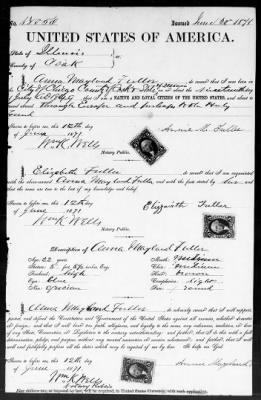 No. 13058 Issued June 20 1871
UNITED STATES OF AMERICA.
State of Illinois
County of Cook
I, Anna Maryland Fuller do swear that I was born in the
City of Chicago County of Cook & State of Illinois on
that I am a NATIVE AND LOYAL CITIZEN OF THE UNITED STATES, and about
through Europe and perhaps to the Holy
Land
Sworn to before me, this 12th day
of June 1871 Annie M. Fuller
Wm K. Wells
Notary Public.
I, Elizabeth Fuller do swear that I am acquainted
with the above-named Anna Maryland Fuller and with the facts stated by her and
that the same are true to the best of my knowledge and belief.
Sworn to before me, this 12th day
of June 1871 Elizabeth Fuller
Wm K. Wells
Notary Public.
Description of Anna Maryland Fuller
Age: 22 years Mouth: medium
Stature: 5 ft Chin: medium
Forehead: high Hair: brown
Eyes: blue Complexion: light
Nose: grecian Face: round
I, Anna Maryland Fuller do solemnly swear that I will support,
protect, and defend the Constitution and Government of the United States against all enemies, whether domestic
or foreign; and that I will bear true faith, allegiance, and loyalty to the same, any ordinance, resolution, or law
of any State, Convention, or Legislature to the contrary notwithstanding; and further, that I do this with a full
determination, pledge, and purpose, without any mental reservation or evasion whatsoever; and further, that I will
well and faithfully perform all the duties which may be required of me by law. So help me God.
Sworn to before me, this 12th
day of June 1871
Wm K. Wells
Notary Public